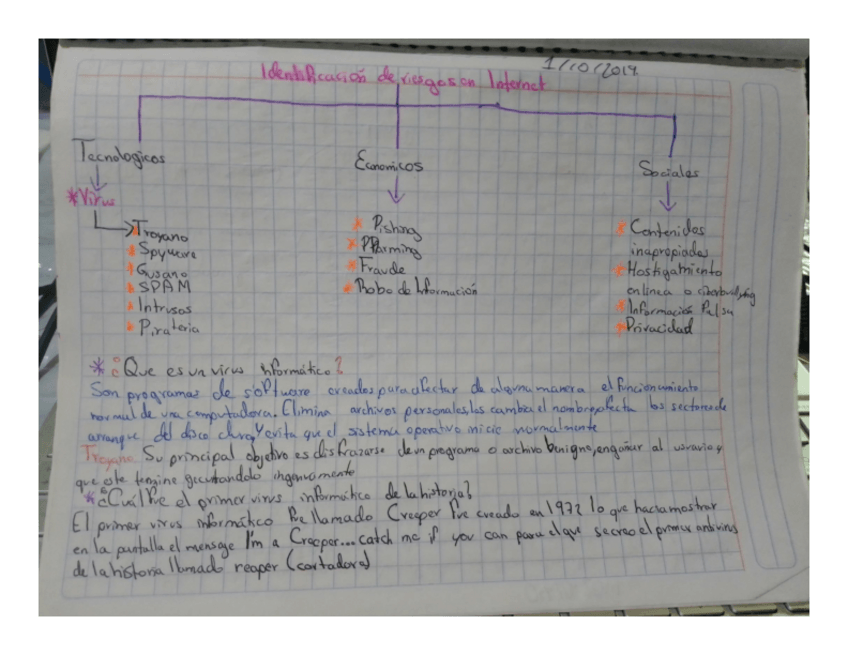 1/10/2019
Identificación de riesgos en Internet
Tecnologicos
Economicos
Sociales
*Virus
* Troyano
* Spyware
* Gusano
* SPAM
* Intrusos
* Pirateria
* Pishing
* PParming
* Fraude
* Robo de Información
* Contenidos
inapropiados
* Hostigamiento
en linea o ciberbullying
* Información Falsa
* Privacidad
* ¿Que es un virus informático?
Son programas de software creados para afectar de alguna manera el funcionamiento
normal de una computadora. Elimina archivos personales, los cambia el nombre, afecta los sectores de
arranque del disco duro y evita que el sistema operativo inicie normalmente
Troyano: Su principal objetivo es disfrazarse de un programa o archivo benigno, engañar al usuario y
que este termine ejecutandolo ingenuamente
* ¿Cuál fue el primer virus informático de la historia?
El primer virus informático fue llamado Creeper fue creado en 1972 lo que hacia mostrar
en la pantalla el mensage I'm a Creeper... catch me if you can para el que se creo el primer antivirus
de la historia llamado reaper (cortadora)